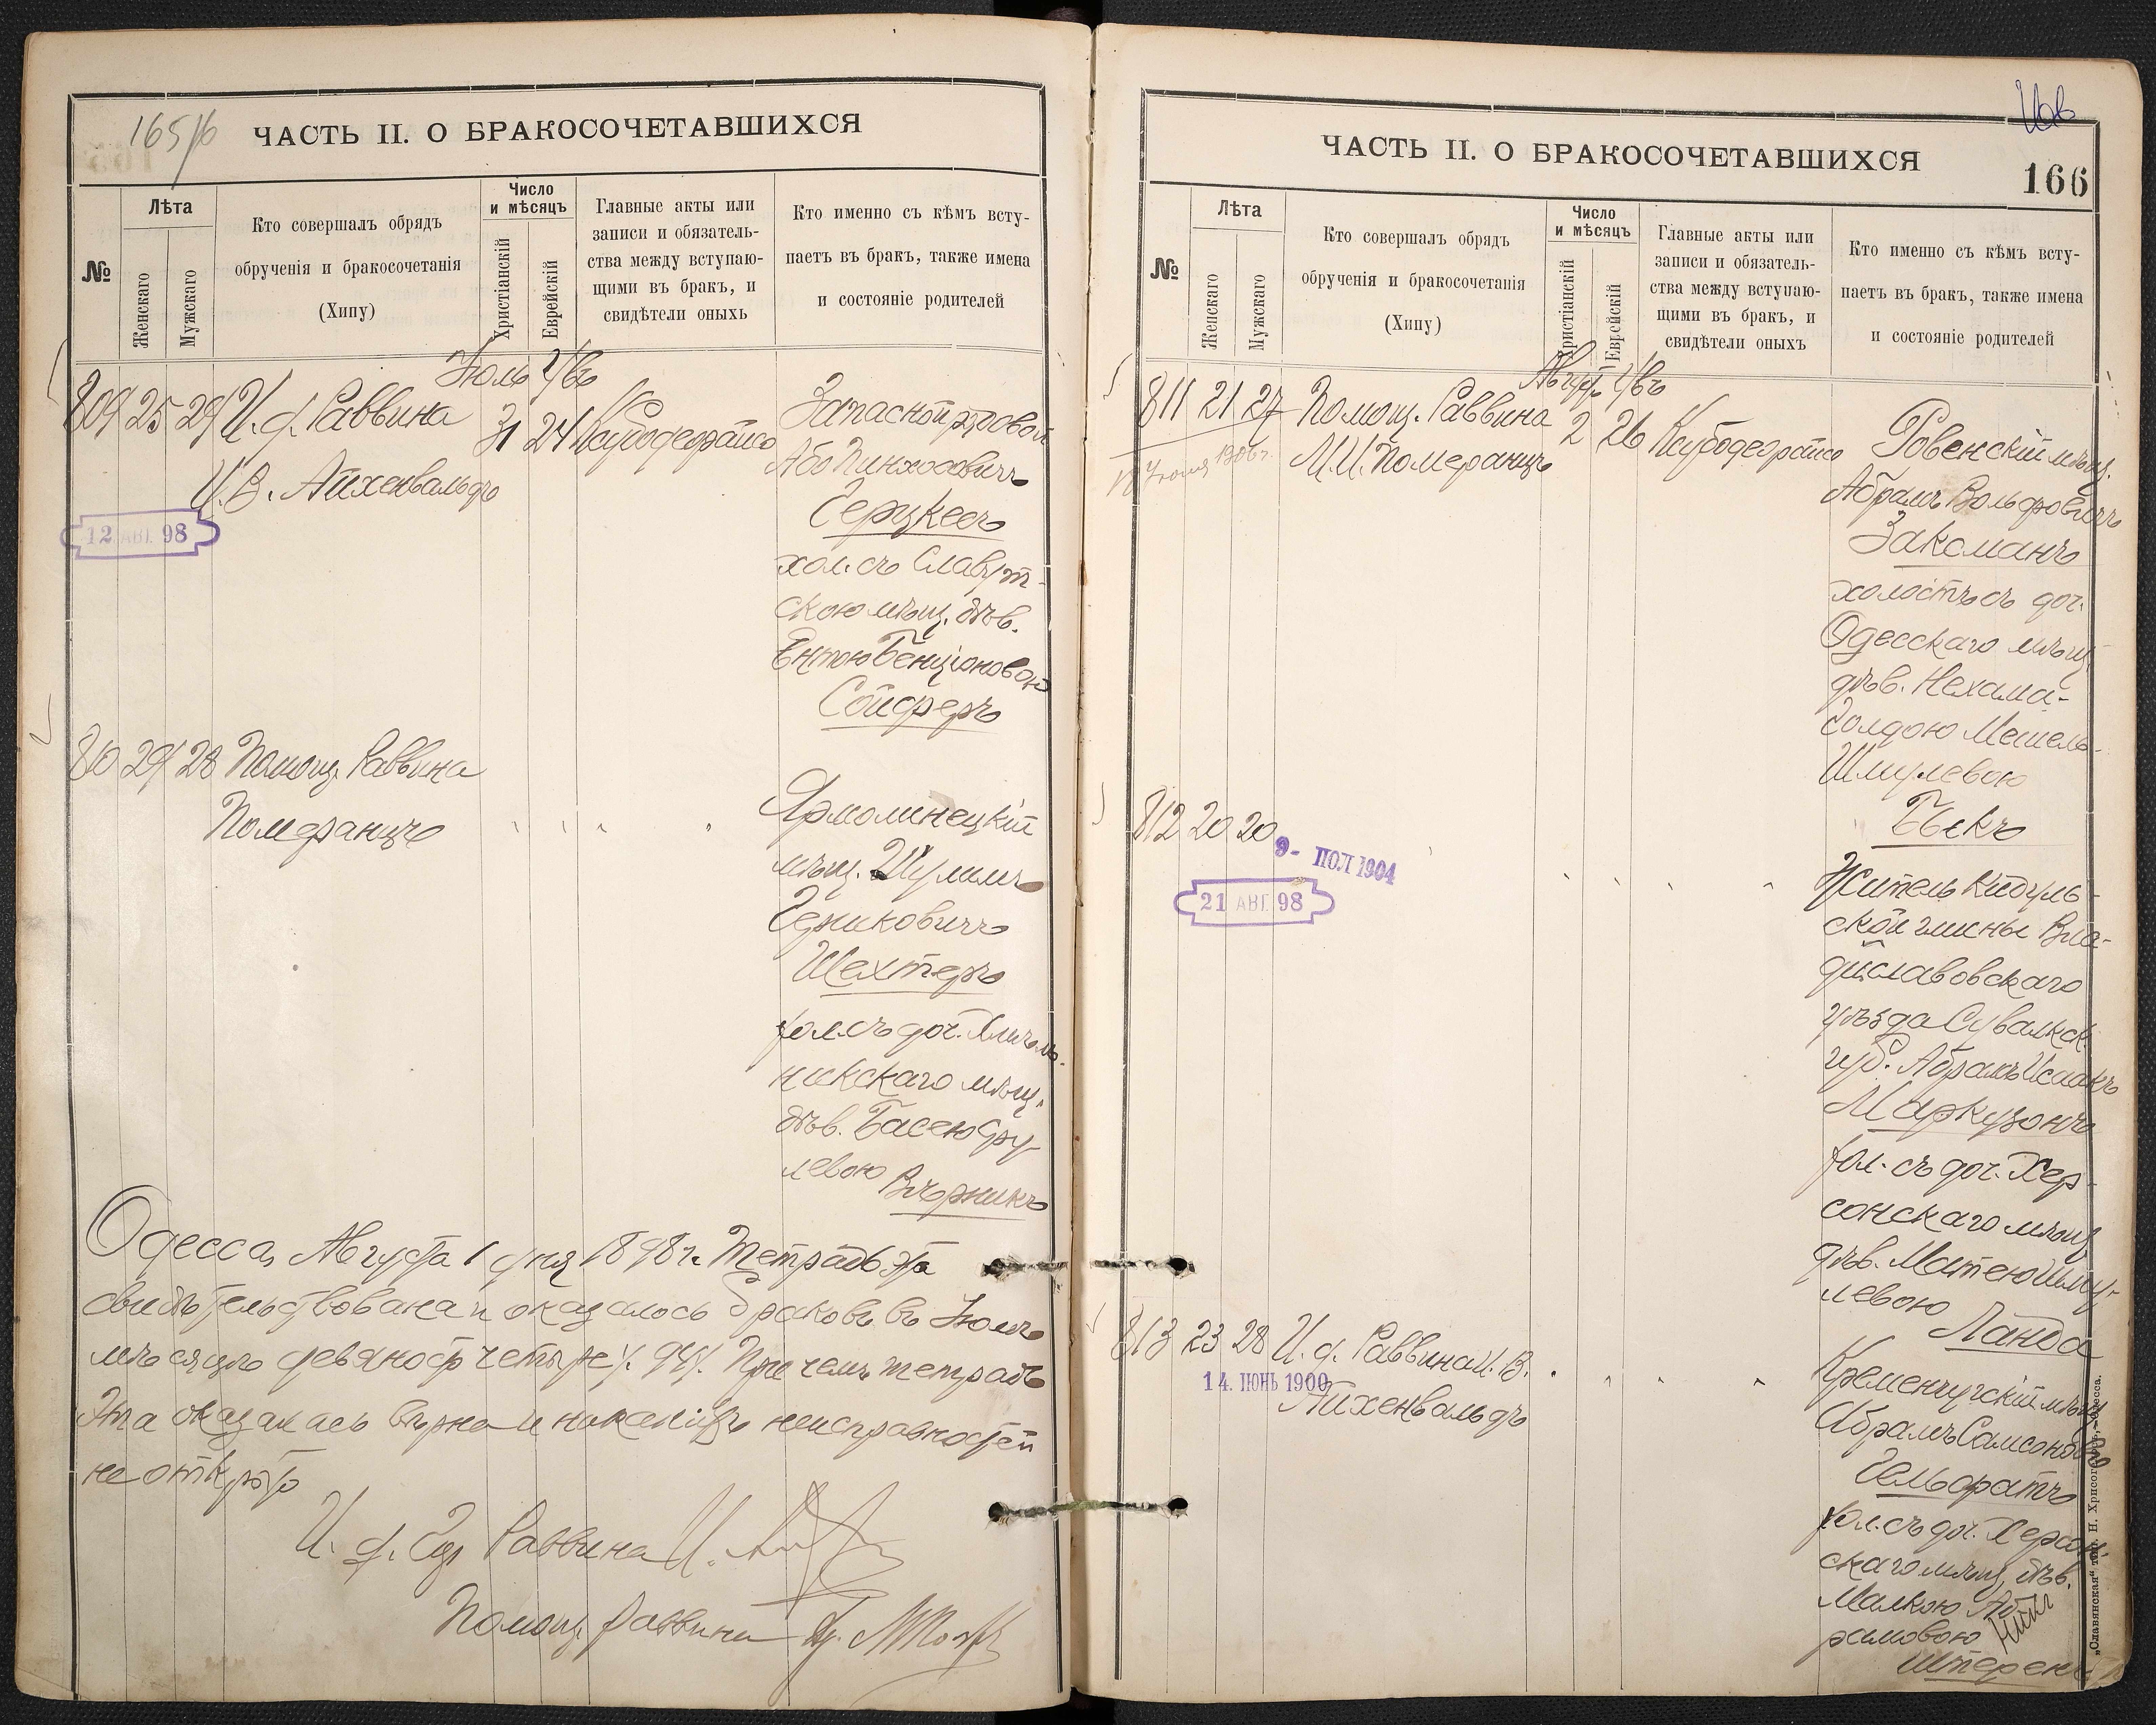 165/б
ЧАСТЬ II. О БРАКОСОЧЕТАВШИХСЯ
№
Лѣта
Женскаго
Мужскаго
Кто совершалъ обрядъ
обрученія и бракосочетанія
(Хипу)
Число
и мѣсяцъ
Христіанскій
Еврейскій
Главные акты или
записи и обязатель-
ства между вступаю-
щими въ бракъ, и
свидѣтели оныхъ
Кто именно съ кѣмъ всту-
паетъ въ бракъ, также имена
и состояніе родителей
Іюль
809 25 29 И. ф. Раввина
И. В. Айхенвальдъ
31 24
12 АВГ. 98
Запасной рядовой
Або Пинхосовичъ
Герцкесъ
хол. съ Славут-
скою мѣщ. дѣв.
Ентою Бенціоновою
Сойферъ
810 29 28 Помощ. Раввина
Померанцъ
Ярмолинецкій
мѣщ. Шулимъ
Шехтеръ
хол. съ доч. Хмѣль-
никскаго мѣщ.
дѣв. Басею Сру-
левою
Вѣрникъ
Одесса, Августа 1 дня 1898 г. Тетрадь эта
свидѣтельствована и оказалось браковъ въ Іюлѣ
мѣсяцѣ девяносто четыре /94/. При чемъ тетрадь
эта оказалась вѣрна и никакихъ неисправностей
не открыто
И. ф. Раввина И.
Помощ. раввина
ЧАСТЬ II. О БРАКОСОЧЕТАВШИХСЯ
166
№
Лѣта
Женскаго
Мужскаго
Кто совершалъ обрядъ
обрученія и бракосочетанія
(Хипу)
Число
и мѣсяцъ
Христіанскій
Еврейскій
Главные акты или
записи и обязатель-
ства между вступаю-
щими въ бракъ, и
свидѣтели оныхъ
Кто именно съ кѣмъ всту-
паетъ въ бракъ, также имена
и состояніе родителей
Августъ
811 21 27 Помощ. Раввина
М. И. Померанцъ
2 26
1906 г.
Ровенскій мѣщ.
Абрамъ Вольфовичъ
Заксманъ
холостъ съ доч.
Одесскаго мѣщ.
дѣв. Нехама-
Голдою Мешель-
Шмулевою
Быкъ
812 20 20
9- ПОЛ 1904
21 АВГ. 98
Житель Кидуль-
ской гмины Вла-
диславовскаго
уѣзда Сувалкск.
губ. Абрамъ Исаакъ
Маркузонъ
хол. съ доч. Хер-
сонскаго мѣщ.
дѣв. Матею Шму-
левою
Ланда
813 23 28 И. ф. Раввина И. В.
Айхенвальдъ
14. ІЮНЬ 1900
Кременчугскій мѣщ.
Абрамъ Самсоновъ
Гельфратъ
хол. съ доч. Херсон-
скаго мѣщ. дѣв.
Малкою Аб-
рамовою
„Славянская“ тип. Н. Хрисогелосъ, Одесса.